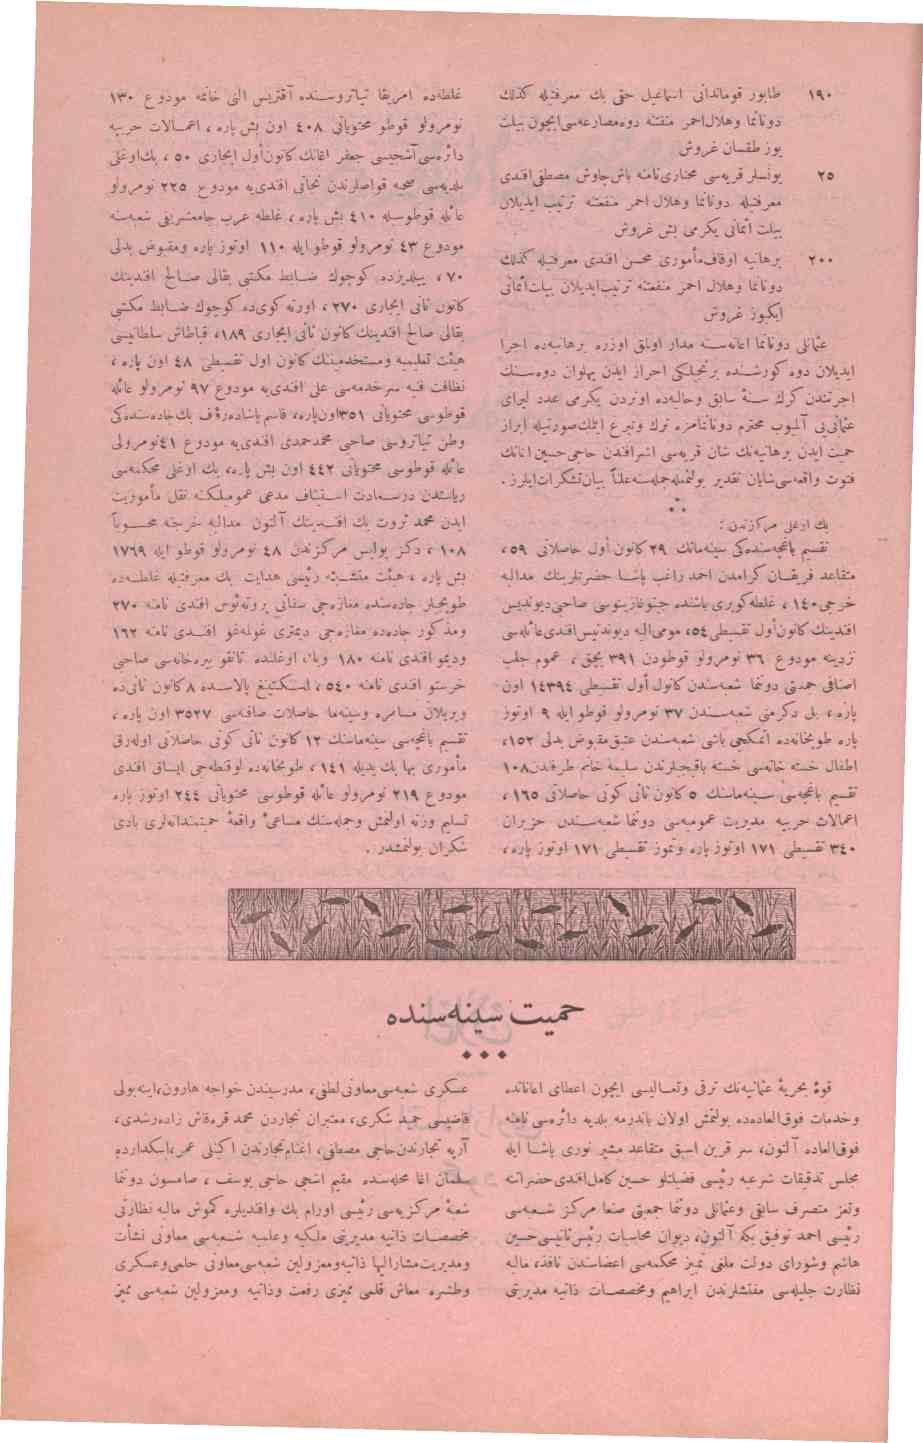 ١٩٠ طابور قوماندانی اسماعیل حقی بك معرفتیله كذلك
دونانما وهلال‌احمر منفعتنه دوه‌مصارعه‌سی‌ایچون بیلت
یوز طقسان غروش
٢٥ یونسلر قریه‌سی مختاری‌نامنه باش‌چاوش مصطفی‌افندی
معرفتیله دونانما وهلال احمر منفعتنه ترتیب ایدیلان
بیلت اثمانی یكرمی بش غروش
٢٠٠ برهانیه اوقاف‌مأموری محسن افندی معرفتیله كذلك
دونانما وهلال احمر منفعتنه ترتیب‌ایدیلان بیلت‌اثمانی
ایكیوز غروش
عثمانلی دونانما اعانه‌سنه مدار اولمق اوزره برهانیه‌ده اجرا
ایدیلان دوه كورشنده برنجیلكی احراز ایدن پهلوان دوه‌سنك
اجرتندن كرك سنهٔ سابق وحالیه‌ده اوتردن یكرمی عدد لیرای
عثمانی‌یی آلمیوب محترم دونانمامزه ترك وتبرع ایتمك‌صورتیله ابراز
حمیت ایدن برهانیه‌نك شان قریه‌سی اشرافندن حاجی‌حسین اغانك
فتوت واقعه‌سی‌شایان تقدیر بولنمغله‌جمله‌سنه‌علناً بیان‌تشكرات‌ایلرز.
٭٭
بك اوغلی مركزندن :
تقسیم باغچه‌سنده‌كی سینه‌مانك ٢٩ كانون أول حاصلاتی ٥٩،
متقاعد فریقان كرامدن احمد راغب پاشا حضرتلرینك مدالیه
خرجی ١٤٠، غلطه كوپری باشنده جنوغازینوسی صاحبی‌دیوندیس
افندینك كانون‌أول تقسیطی ٥٤، مومی‌الیه دیوندیس‌افندی‌عائله‌سی
نزدینه مودوع ٣٦ نومرولو قوطودن ٣٩١ بچق، عموم جلب
اصنافی جمعیتی دونما شعبه‌سندن كانول أول تقسیطی ١٤٣٩٤ اون
پاره، بل دكرمنی شعبه‌سندن ٣٧ نومرولو قوطو ایله ٩ اوتوز
پاره طوپخانه‌ده اتمكجی باشی شعبه‌سندن عتیق‌مقبوض بدلی ١٥٢،
اطفال خسته خانه‌سی خسته باقیجیلرندن سلیمه خانم طرفندن‌١٠٨
تقسیم باغچه‌سی سینه‌ماسنك ٥ كانون ثانی كونی حاصلاتی ١٦٥،
اعمالات حربیه مدیریت عمومیه‌سی دونما شعبه‌سندن حزیران
٣٤٠ تقسیطی ١٧١ اوتوز پاره وتموز تقسیطی ١٧١ اوتوز پاره،
غلطه‌ده امریقا تیاتروسنده آقتریس الی خانمه مودوع ١٣٠
نومرولو قوطو محتویاتی ٤٠٨ اون بش پاره، اعمالات حربیه
دائره‌سی‌آشجیسی جعفر اغانك كانون‌أول ایجاری ٥٠، بك‌اوغلی
بلدیه‌سی صحیه قواصلرندن نجاتی افندی‌یه مودوع ٢٢٥ نومرولو
عائله قوطوسیله ٤١٠ بش پاره، غلطه عرب جامعشریفی شعبه‌سنه
مودوع ٤٣ نومرولو قوطو ایله ١١٠ اوتوز پاره ومقبوض بدلی
٧٠، ییلدیزده كوچوك ضابط مكتبی بقالی صالح افندینك
كانون ثانی ایجاری ٢٧٠، اورته كوی‌ده كوچوك ضابط مكتبی
بقالی صالح افندینك كانون ثانی ایجاری ١٨٩، قباطاش سلطانیسی
هیئت تعلیمیه ومستخدمیننك كانون اول تقسیطی ٤٨ اون پاره،
نظافت فنیه سرخدمه‌سی علی افندی‌یه مودوع ٩٧ نومرولو عائله
قوطوسی محتویاتی ٣٥١اون‌پاره، قاسم‌پاشاده‌رؤف بك‌جاده‌سنده‌كی
وطن تیاتروسی صاحبی محمدحمدی افندی‌یه مودوع ٤١نومرولی
عائله قوطوسی محتویاتی ٤٤٢ اون بش پاره، بك اوغلی محكمه‌سی
ریاستدن درسعادت استیناف مدعی عمومیلكنه نقل مأموریت
ایدن محمد ثروت بك افندینك آلتون مدالیه خرجنه محسوباً
١٠٨، دكز پولیس مركزندن ٤٨ نومرولو قوطو ایله ١٧٦٩
بش پاره، هیئت تفتیشیه رئیسی هدایت بك معرفتیله غلطه‌ده
طوپجیلر جاده‌سنده مغازه‌جی سفانی پروته‌ئوس افندی نامنه ٢٧٠
ومذكور جاده‌ده مغازه‌جی دیمتری غوله‌غو افندی نامنه ١٦٢
ودیمو افندی نامنه ١٨٠ وبان اوغلنده تانقو بیره‌خانه‌سی صاحبی
خرستو افندی نامنه ٥٤٠، اسكتینغ پالاسده ٨كانون ثانی‌ده
ویریلان مسامره وسینه‌ما حاصلات صافیه‌سی ٣٥٢٧ اون پاره،
تقسیم باغچه‌سی سینه‌ماسنك ١٢ كانون ثانی كونی حاصلاتی اوله‌رق
مأموری بها بك یدیله ١٤١، طوپخانه‌ده لوقنطه‌جی ایساق افندی
مودوع ٢١٩ نومرولو عائله قوطوسی محتویاتی ٢٤٤ اوتوز پاره
تسلیم وزنه اولنمش وجمله‌سنك مساعیٔ واقعهٔ حمیتمندانه‌لری بادی
شكران بولنمشدر.
حمیت سینه‌سنده
قوهٔ بحریهٔ عثمانیه‌نك ترقی وتعالیسی ایچون اعطای اعاناتده
وخدمات فوق‌العاده‌ده بولنمش اولان باندرمه بلدیه دائره‌سی نامنه
فوق‌العاده آلتون، سر قرین اسبق متقاعد مشیر نوری پاشا ایله
مجلس تدقیقات شرعیه رئیسی فضیلتلو حسین كامل‌افندی‌حضراتنه
وتعز متصرف سابقی وعثمانلی دونما جمعیتی صنعا مركز شعبه‌سی
رئیسی احمد توفیق بكه آلتون، دیوان محاسبات رئیس‌ثانیسی‌حسین
هاشم وشورای دولت ملغی تمییز محكمه‌سی اعضاسندن نافذ، مالیه
نظارت جلیله‌سی مفتشلرندن ابراهیم ومخصصات ذاتیه مدیریتی
عسكری شعبه‌سی‌معاونی‌لطفی، مدرسیندن خواجه هارون،اینه‌بولی
قاضیسی حمید شكری، معتبران تجاردن محمد قره‌قاش زاده‌رشدی،
آریه تجارندن‌حاجی مصطفی، اغنام‌تجارندن اكینلی عمر،اسكدارده
سلمان اغا محله‌سنده مقیم اشجی حاجی یوسف، صامسون دونما
شعبهٔ مركزیه‌سی رئیسی اورام بك وافندیلره كموش مالیه نظارتی
مخصصات ذاتیه مدیریتی ملكیه وعلمیه شعبه‌سی معاونی نشأت
ومدیریت‌مشارالیها ذاتیه‌ومعزولین شعبه‌سی‌معاونی حلمی‌وعسكری
وطشره معاش قلمی ممیزی رفعت وذاتیه ومعزولین شعبه‌سی ممیز